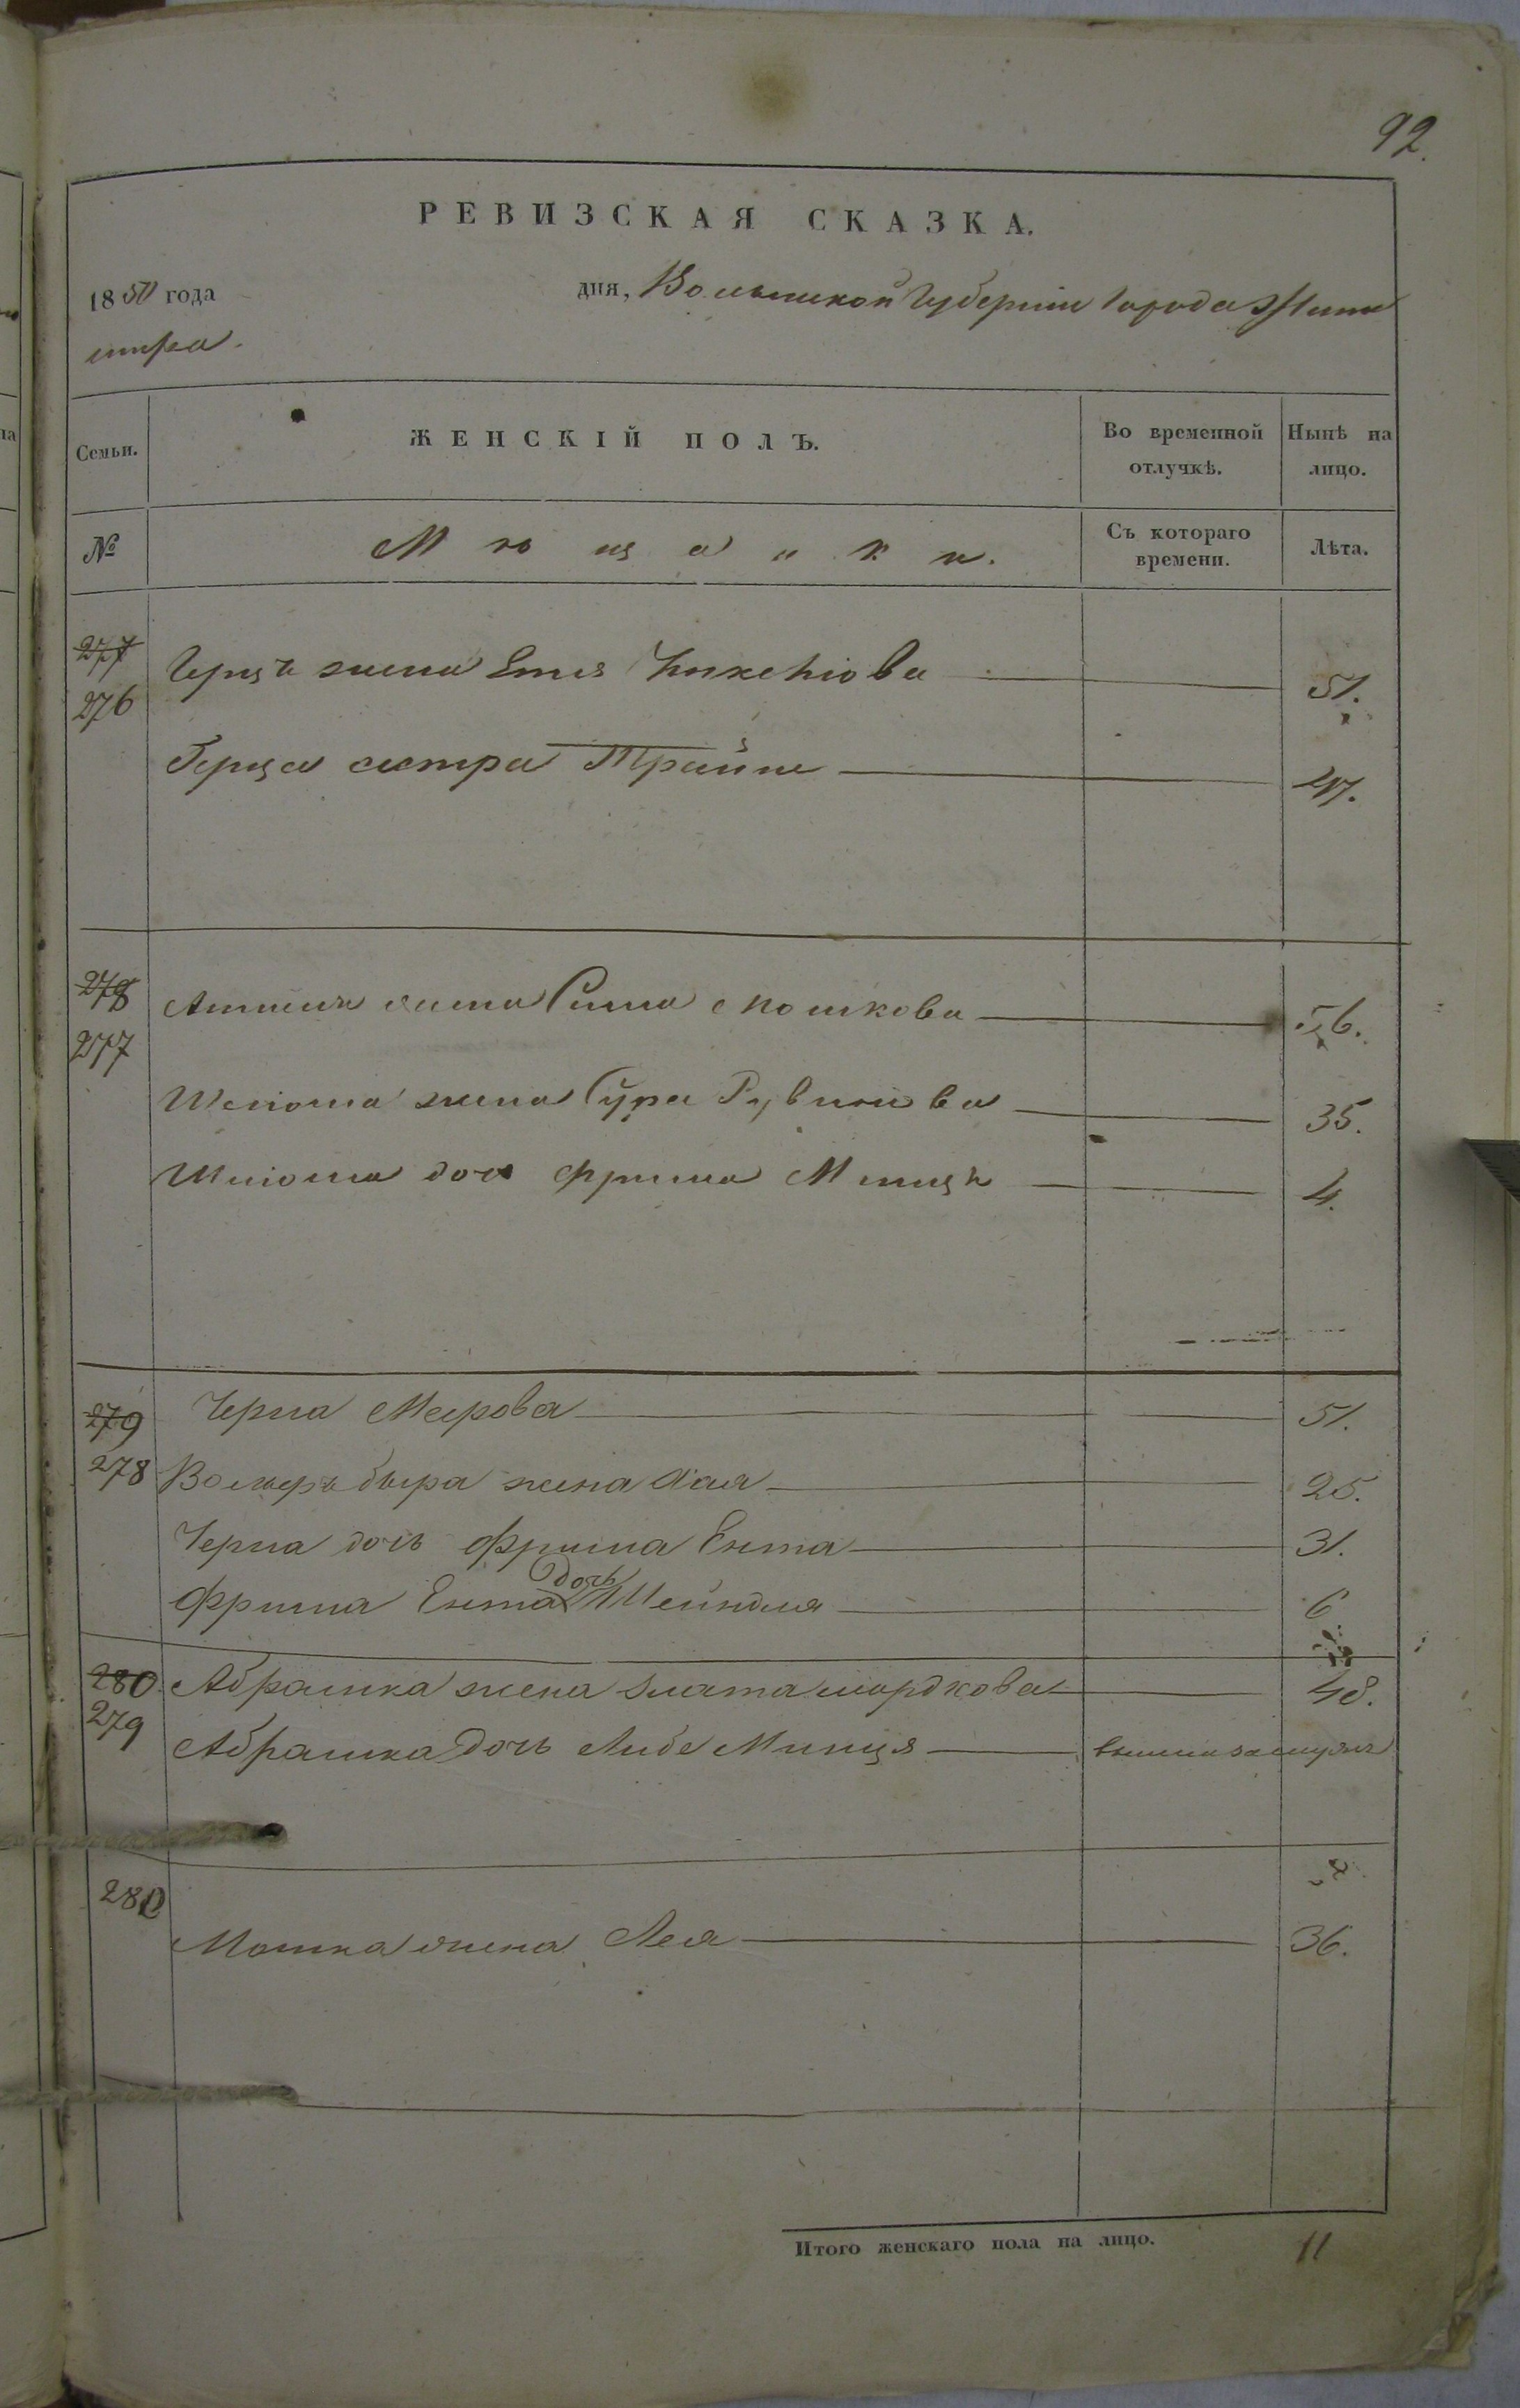 92.
РЕВИЗСКАЯ СКАЗКА.
1850 года дня, Волынской Губернии Города Жито
мира.
Семьи. ЖЕНСКІЙ ПОЛЪ. Во временной отлучкѣ. Нынѣ на лицо.
№ Мѣщанки. Съ котораго времени. Лѣта.
277
276 жена
51.
Герца сестра Трайна
278
277 жена Сима Мошкова 56.
жена Сура Рувинова 35.
доч Фрима 4.
279 Черна Меерова 51.
278 жена Хая 25.
Черна дочь Фрима Ента 31.
Фрима Ента дочь Шейндля 6
280 Абрамка жена Злата Мордкова 48.
279 Абрамка дочь Либе Минця вышла замужъ
280
Мошка жена Лея 36.
Итого женскаго пола на лицо. 11